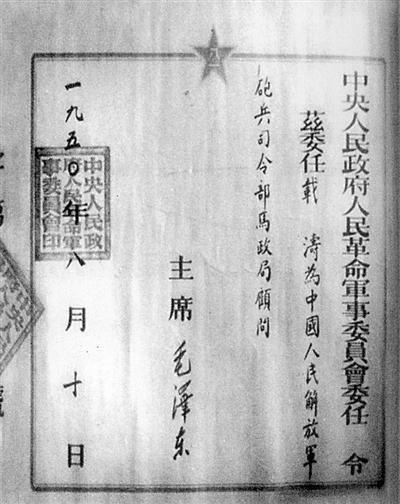 中央人民政府人民革命軍事委員會委任令
茲委任載濤為中國人民解放軍
砲兵司令部馬政局顧問
主席 毛澤东
一九五〇年八月十日
中央人民政
府人民革命軍
事委員會印
八一